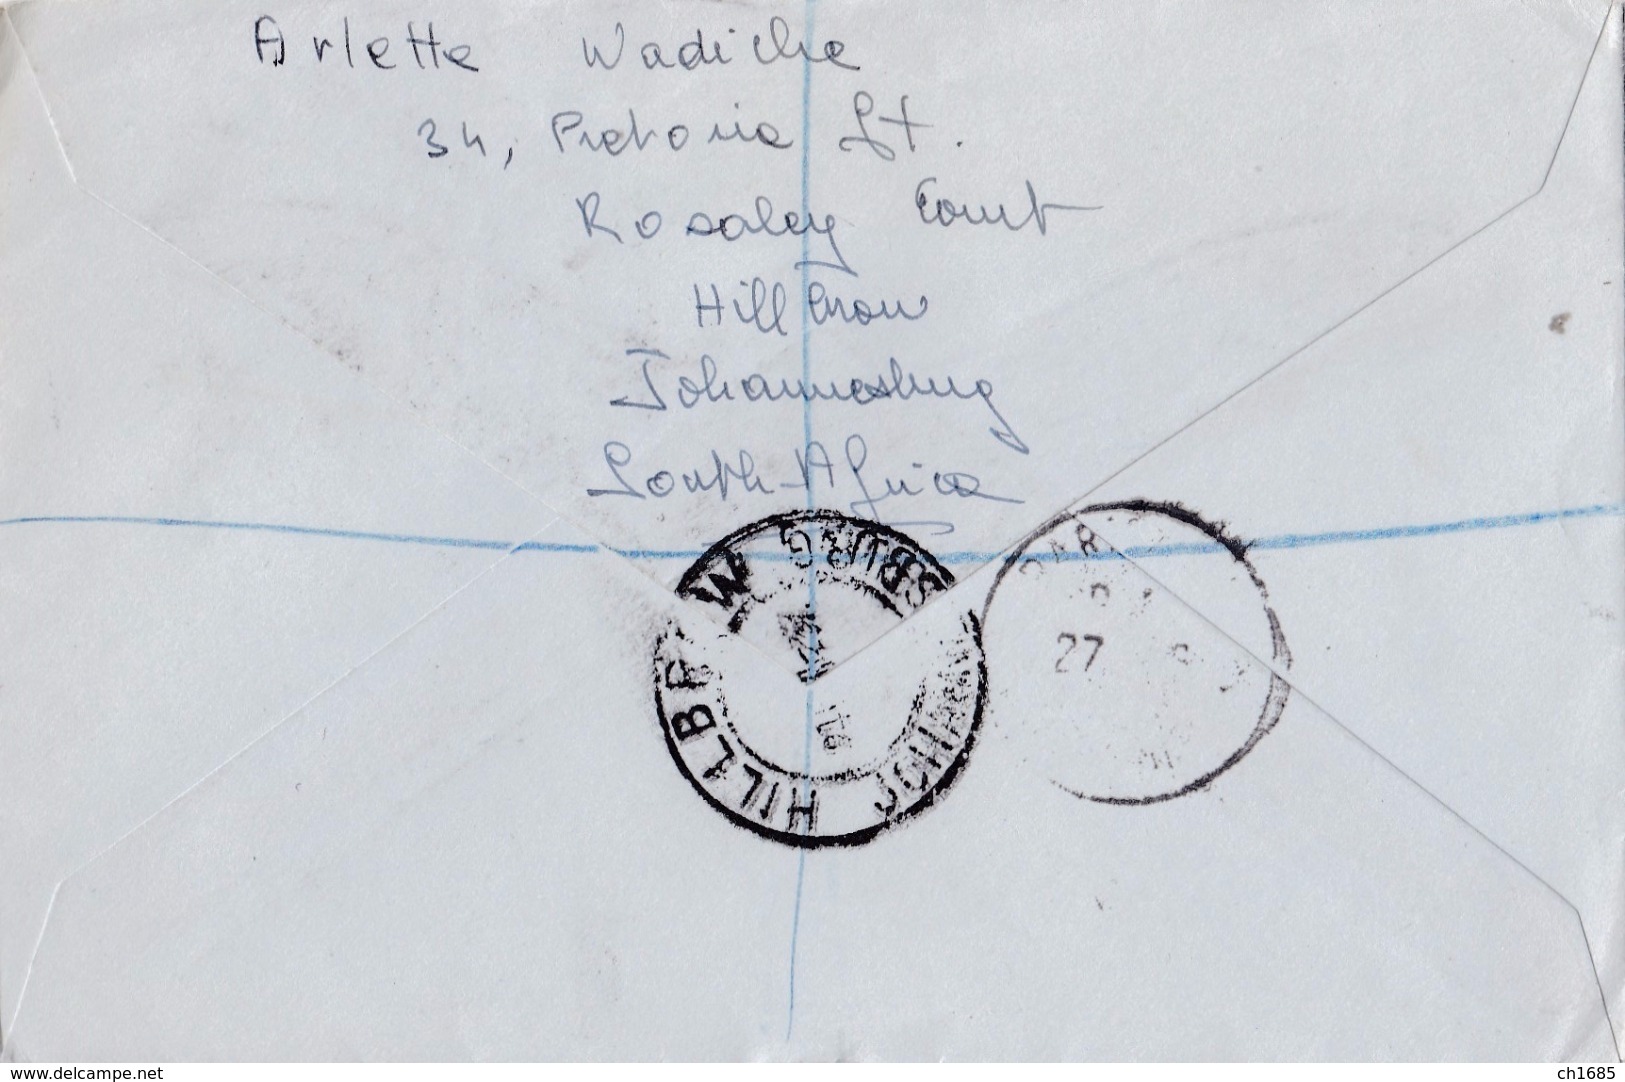 Arlette Wadiche
34, Pretoria St.
Rosaley Court
Hillbrow
Johannesburg
South-Africa
HILLBROW JOHANNESBURG
PAR
27
www.delcampe.net
ch1685